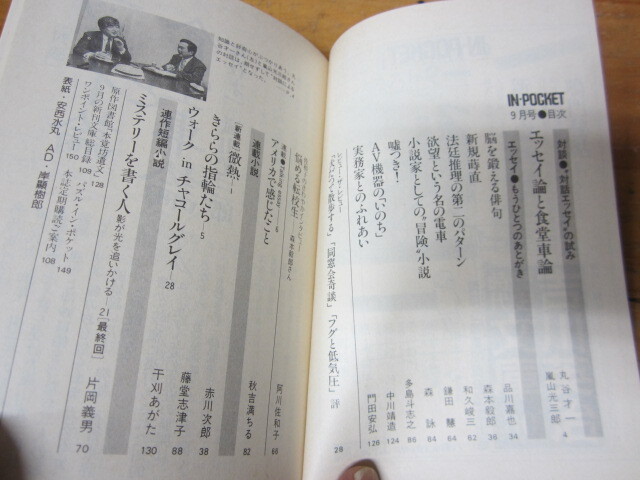 IN★POCKET
9月号●目次
対談●“対話エッセイ”の試み
エッセイ論と食堂車論 丸谷才一 嵐山光三郎 4
エッセイ●もうひとつのあとがき
脳を鍛える俳句 品川嘉也 34
新規蒔直 森本毅郎 36
法廷推理の第二のパターン 和久峻三 62
欲望という名の電車 鎌田慧 64
小説家としての“冒険”小説 森詠 84
嘘つき! 多島斗志之 86
AV機器の「いのち」 中川靖造 124
実務家とのふれあい 門田安弘 126
「同窓会奇談」「フグと低気圧」評 28
悩める転校生 森本毅郎さん
アメリカで感じたこと 阿川佐和子 68
連載小説
[新連載]微熱—1 秋吉満ちる 82
きららの指輪たち—5 赤川次郎 38
ウォーク in チャコールグレイ—28 藤堂志津子 88
連作短編小説 干刈あがた 130
ミステリーを書く人 影が光を追いかける—21[最終回] 片岡義男 70
原作図書館「本覚坊遺文」128
9月の新刊文庫総目録 109 パズル・イン・ポケット 149
ワンポイント・レビュー 150 本誌定期購読ご案内 108
表紙・安西水丸 AD・岸顯樹郎